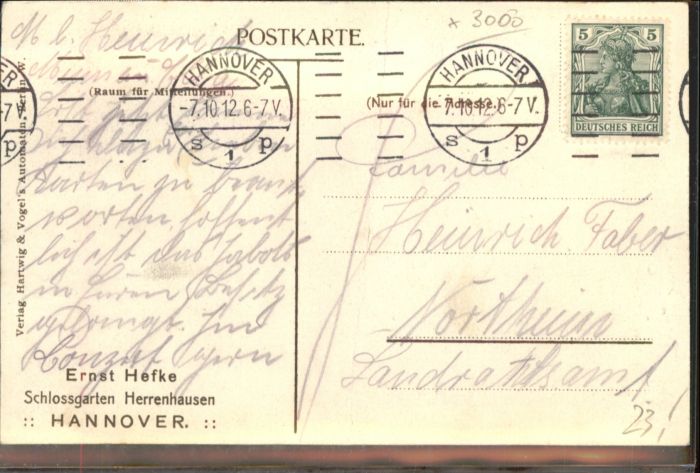 × 3000
POSTKARTE.
M l. Heinrich
(Raum für Mitteilungen.)
(Nur für die Adresse.)
HANNOVER
-7.10.12.6-7V.
s 1 p
HANNOVER
-7.10.12.6-7V.
s 1 p
5 5
DEUTSCHES REICH
Karten zu beant
worten, hoffent
lich ist das
in Ihrem Besitz
gelangt. Im
Konzert
Familie
Heinrich Faber
Northeim
Landrathsamt
23!
Ernst Hefke
Schlossgarten Herrenhausen
:: HANNOVER. ::
Verlag Hartwig & Vogel's Automaten, Berlin W.